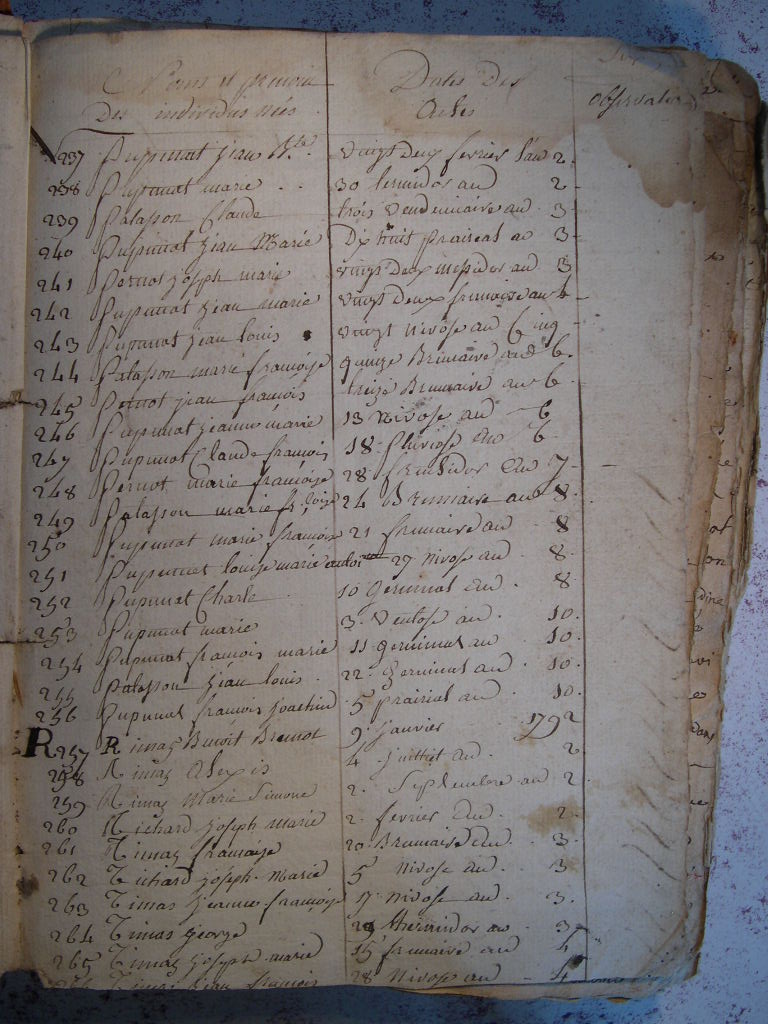 Noms et prenoms Dates Des
Des individus nés Actes observations
237 Pupunat jean Bte. vingt deux fevrier l'an 2.
238 Pupunat marie . . 30 termidor an 2
239 Palasson Claude trois vendemiaire an 3
240 Pupunat jean Marie Dix huit prairial an 3
241 Pernot joseph marie vingt Deux messidor an 3
242 Pupunat jean marie vingt Deux frimaire an 4
243 Pupunat jean louis vingt nivose an Cinq
244 Palasson marie françoise quinze Brumaire an 6.
245 Pernot jean francois treize Brumaire an 6
246 Pupunat jeanne marie 13 Nivose an 6
247 Pupunat Claude francois 18 Pluviose an 6.
248 Pernot marie françoise 28 fructidor an 7
249 Palasson marie fr.çoise 24 Brumaire an 8.
250 Pupunat marie francoise 21 frimaire an 8
251 Pupunat louise marie 29 Nivose an 8
252 Pupunat Charle 10 Germinal an 8
253 Pupunat marie 3 Ventose an 10.
254 Pupunat francois marie 11 germinal an 10.
255 Palasson jean louis 22 Germinal an 10.
256 Pupunat francois joachim 5 prairial an 10.
R 257 Rimaz Benoit Bremot 9 janvier 1792
258 Rimaz Alexis 4 juillet an 2
259 Rimaz Marie Simone 2 Septembre an 2
260 Richard joseph marie 2 fevrier an 2.
261 Rimaz françoise 20 Brumaire an 3.
262 Richard joseph marie 5 nivose an 3
263 Rimas jeanne françoise 17 nivose an 3.
264 Rimas george 29 thermidor an 3
265 Rimaz joseph marie 15 frimaire an 4
266 Rimaz jean francois 28 Nivose an 4